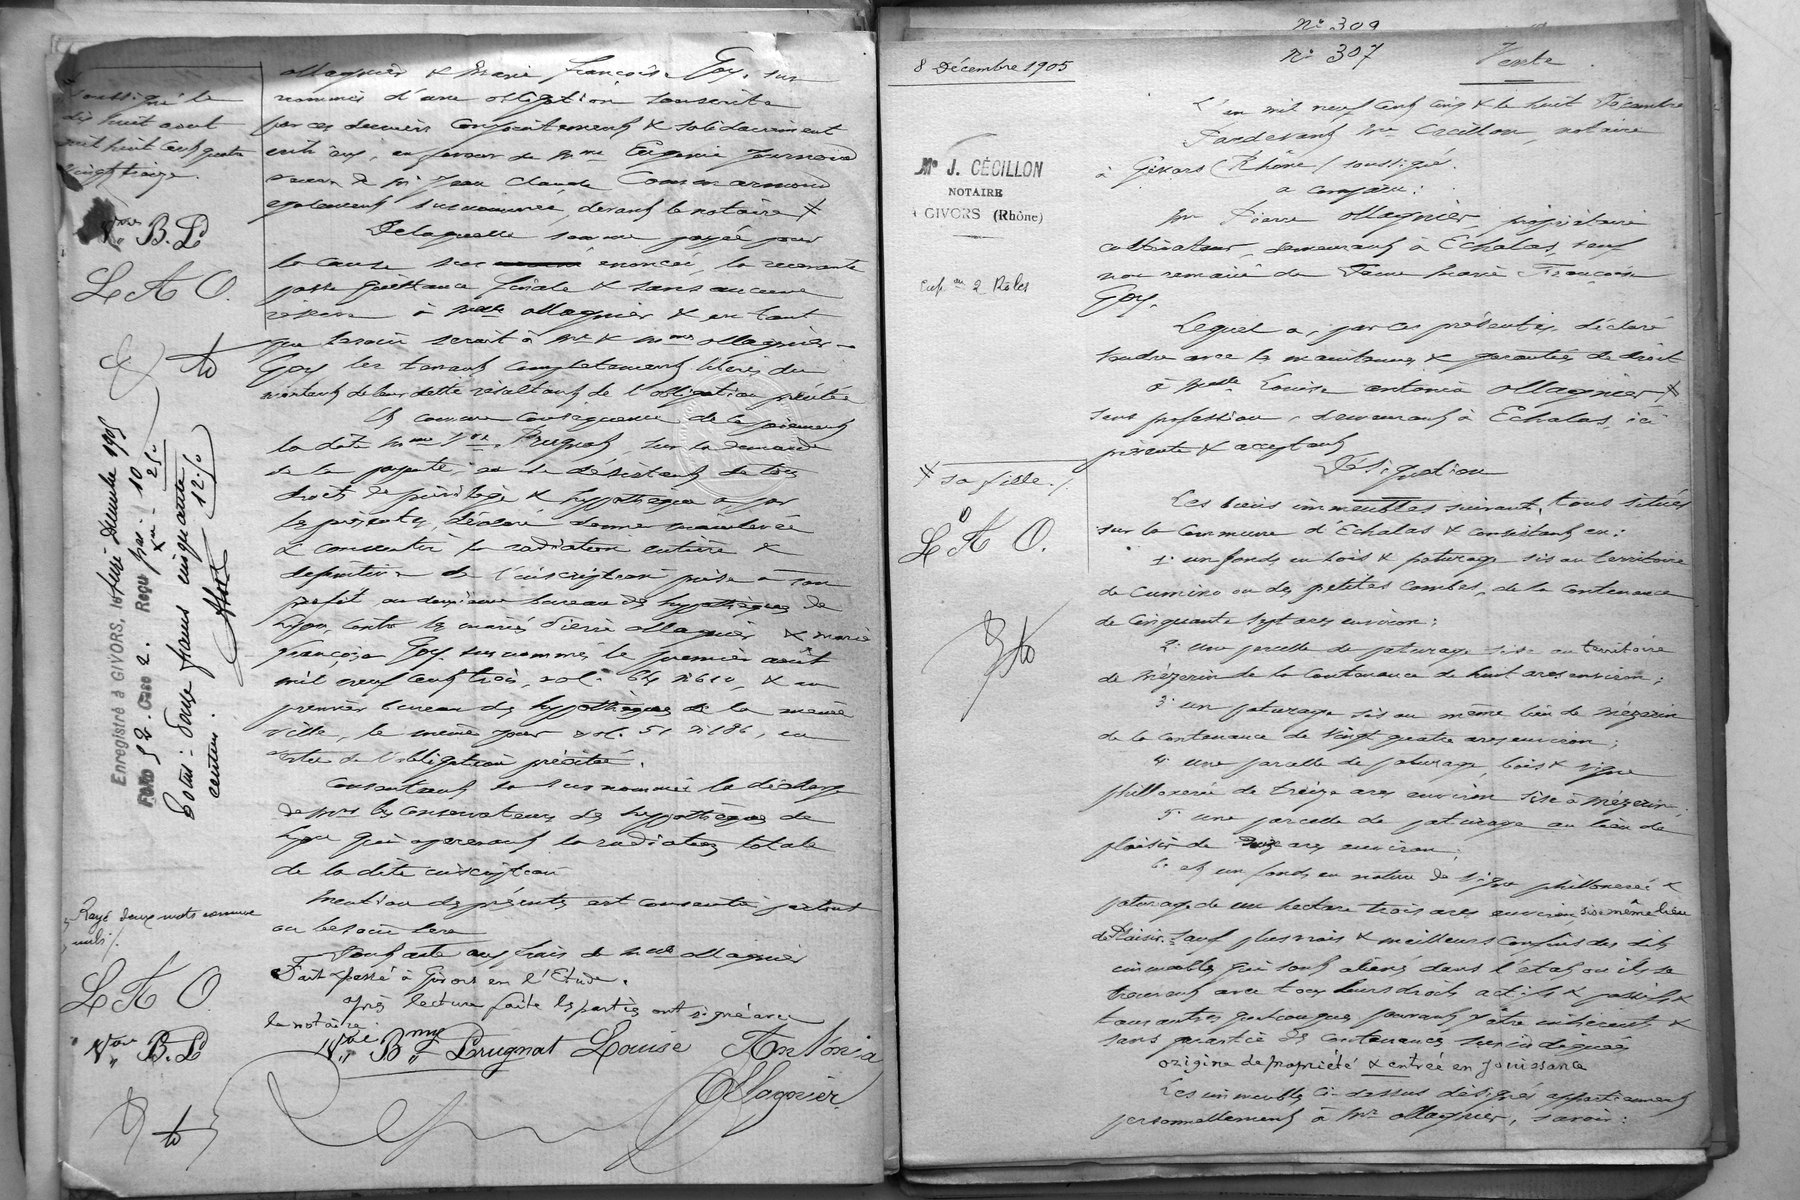 soussigné le
dix huit aout
mil huit cent quatre
vingt treize.
Vve B. P
L A O.
Enregistré à GIVORS, le treize Décembre 1905
Folio 52. Case 2. Reçu par: 10
25 c
Total: Douze francs cinquante
centimes. 12.50
Rayé deux mots comme
nuls
L A O
Vve B. P
Ollagnier & Marie Françoise Goy, sus
nommés d'une obligation souscrite
par ces derniers conjointement & solidairement
entr'eux, en faveur de Mme Eugénie
veuve de Mr Jean Claude Commarmond
également susnommée, devant le notaire
De laquelle somme payée pour
la cause sus énoncée, la recevante
passe quittance finale & sans aucune
réserve à Melle Ollagnier & en tant
que besoin serait à Mr & Mme Ollagnier-
Goy les tenant complètement libérés du
montant de leur dette résultant de l'obligation précitée
Et comme conséquence de ce paiement
la dite Mme Vve Prugnat, sur la demande
de la payante, en se désistant de tous
droits de privilège & hypothèque a par
les présentes, déclaré donner mainlevée
& consentir la radiation entière &
définitive de l'inscription prise à son
profit au deuxième bureau des hypothèques de
Lyon, contre les mariés Pierre Ollagnier & Marie
Françoise Goy, susnommés le premier août
mil neuf cent trois, vol. 64 & au
premier bureau des hypothèques de la même
ville, le même jour vol. 51 n° 186, en
vertu de l'obligation précitée.
Consentant la susnommée la décharge
de MM les Conservateurs des hypothèques de
Lyon qui opèreront la radiation totale
de la dite inscription
Mention des présentes est consentie partout
ou besoin sera
Dont acte aux frais de Melle Ollagnier
Fait & passé à Givors en l'Etude.
Après lecture faite les parties ont signé avec
le notaire.
Vve Bmy Prugnat Louise Antonia
Ollagnier
N° 309
N° 307
8 Décembre 1905
Vente
Me J. CÉCILLON
NOTAIRE
A GIVORS (Rhône)
Exp. en 2 Rôles
sa fille.
L A O.
L'an mil neuf cent cinq & le huit Décembre
Pardevant Me Cécillon, notaire
à Givors (Rhône) soussigné.
a comparu:
Mr Pierre Ollagnier, propriétaire
cultivateur, demeurant à Echalas, veuf
non remarié de Dame Marie Françoise
Goy.
Lequel a, par ces présentes, déclaré
vendre avec les maintenues & garanties de droit
à Melle Louise Antonia Ollagnier
sans profession, demeurant à Echalas, ici
présente & acceptant
Désignation
Les biens immeubles suivants, tous situés
sur la Commune d'Echalas & consistant en:
1° un fonds en bois & paturage sis au territoire
de ou des petites combes, de la contenance
de Cinquante sept ares environ;
2° une parcelle de paturage sise au territoire
de Mézerin de la contenance de huit ares environ;
3° un paturage sis au même lieu de Mézerin
de la contenance de vingt quatre ares environ;
4° une parcelle de paturage, bois & vigne
philloxérée de treize ares environ sise à Mézerin;
5° une parcelle de paturage au lieu de
plaisir de ares environ;
6° et un fonds en nature de vigne philloxerée &
paturage de un hectare trois ares environ sis même lieu
de Plaisir. Sauf plus vrais & meilleurs confins des dits
immeubles qui sont aliénés dans l'état ou ils se
trouvent avec tous leurs droits actifs & passifs &
tous autres quelconques pouvant y être inhérents &
sans garantie de contenances susindiquées
Origine de propriété & entrée en jouissance
Les immeubles ci-dessus désignés appartiennent
personnellement à Mr Ollagnier, savoir: